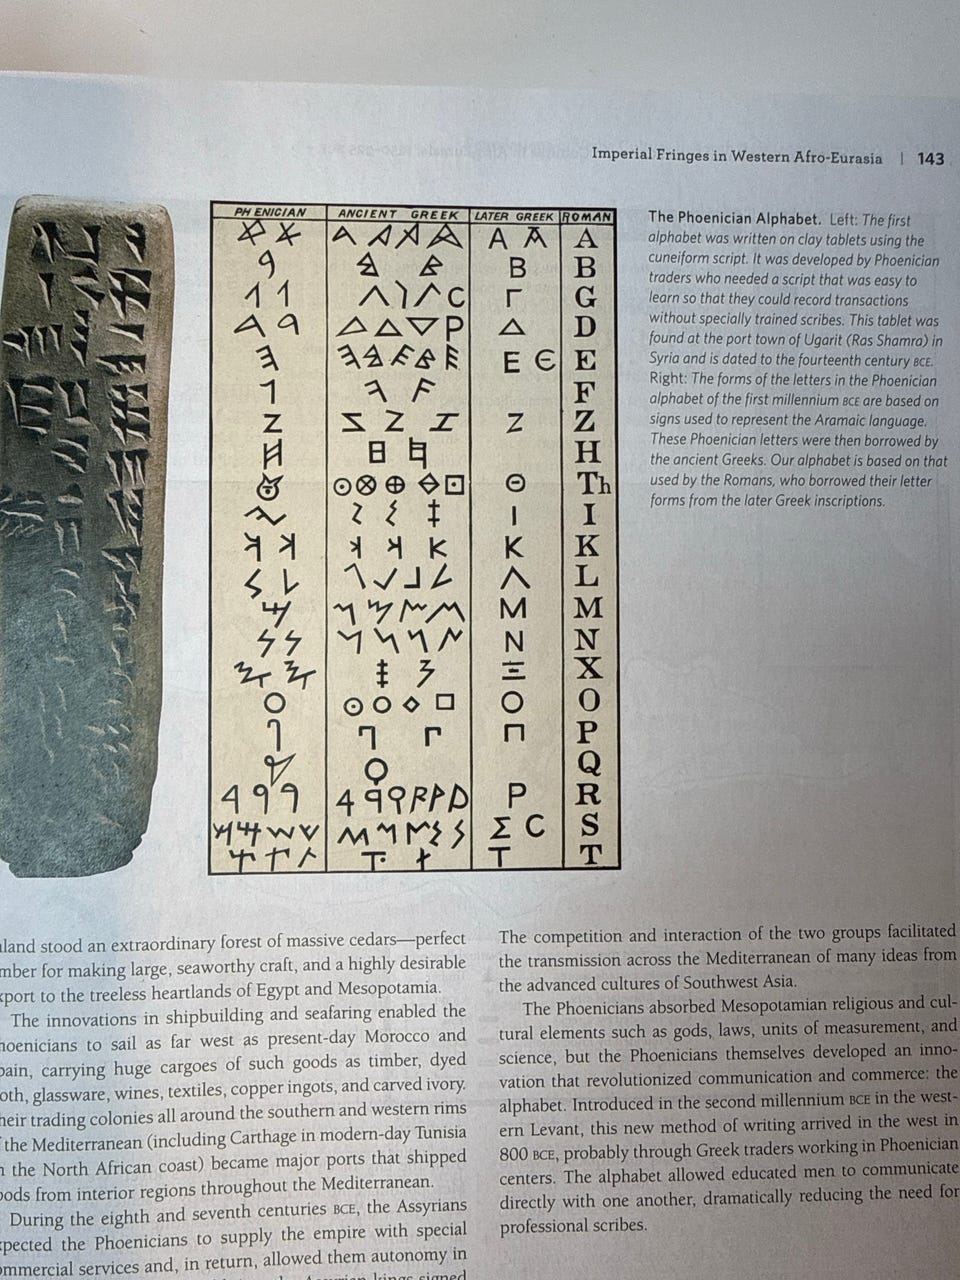 Imperial Fringes in Western Afro-Eurasia | 143
PHENICIAN ANCIENT GREEK LATER GREEK ROMAN
A A A
B B
Γ G
Δ D
E Є E
F
Z Z
H
Θ Th
I I
K K
Λ L
M M
N N
Ξ X
O O
Π P
Q
P R
Σ C S
T T
The Phoenician Alphabet. Left: The first
alphabet was written on clay tablets using the
cuneiform script. It was developed by Phoenician
traders who needed a script that was easy to
learn so that they could record transactions
without specially trained scribes. This tablet was
found at the port town of Ugarit (Ras Shamra) in
Syria and is dated to the fourteenth century BCE.
Right: The forms of the letters in the Phoenician
alphabet of the first millennium BCE are based on
signs used to represent the Aramaic language.
These Phoenician letters were then borrowed by
the ancient Greeks. Our alphabet is based on that
used by the Romans, who borrowed their letter
forms from the later Greek inscriptions.
land stood an extraordinary forest of massive cedars—perfect
mber for making large, seaworthy craft, and a highly desirable
xport to the treeless heartlands of Egypt and Mesopotamia.
The innovations in shipbuilding and seafaring enabled the
hoenicians to sail as far west as present-day Morocco and
pain, carrying huge cargoes of such goods as timber, dyed
oth, glassware, wines, textiles, copper ingots, and carved ivory.
heir trading colonies all around the southern and western rims
f the Mediterranean (including Carthage in modern-day Tunisia
n the North African coast) became major ports that shipped
oods from interior regions throughout the Mediterranean.
During the eighth and seventh centuries BCE, the Assyrians
xpected the Phoenicians to supply the empire with special
ommercial services and, in return, allowed them autonomy in
Assyrian kings signed
The competition and interaction of the two groups facilitated
the transmission across the Mediterranean of many ideas from
the advanced cultures of Southwest Asia.
The Phoenicians absorbed Mesopotamian religious and cul-
tural elements such as gods, laws, units of measurement, and
science, but the Phoenicians themselves developed an inno-
vation that revolutionized communication and commerce: the
alphabet. Introduced in the second millennium BCE in the west-
ern Levant, this new method of writing arrived in the west in
800 BCE, probably through Greek traders working in Phoenician
centers. The alphabet allowed educated men to communicate
directly with one another, dramatically reducing the need for
professional scribes.